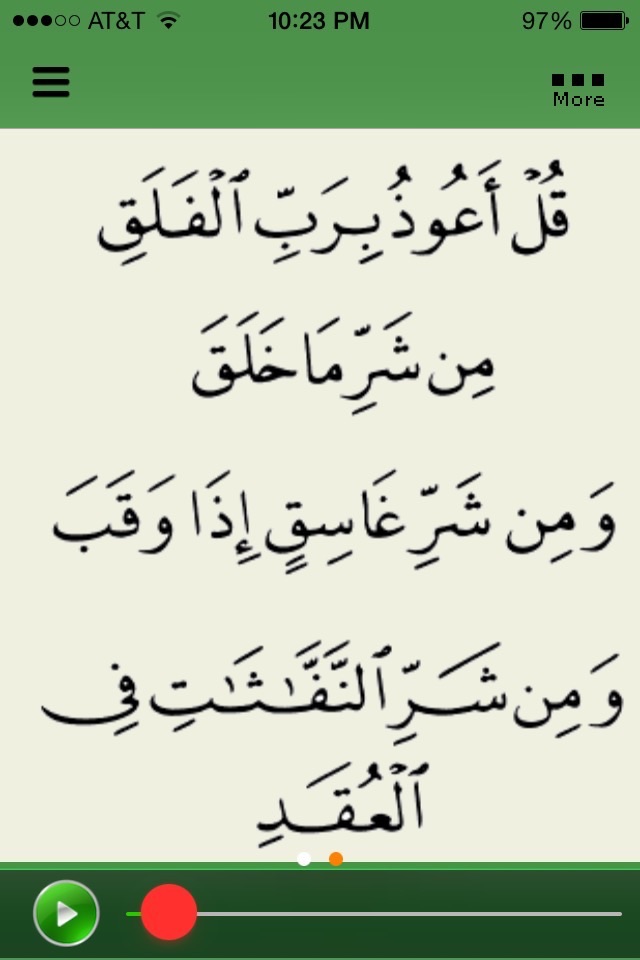 AT&T 10:23 PM 97%
More
قُلْ أَعُوذُ بِرَبِّ ٱلْفَلَقِ
مِن شَرِّ مَا خَلَقَ
وَمِن شَرِّ غَاسِقٍ إِذَا وَقَبَ
وَمِن شَرِّ ٱلنَّفَّـٰثَـٰتِ فِى
ٱلْعُقَدِ